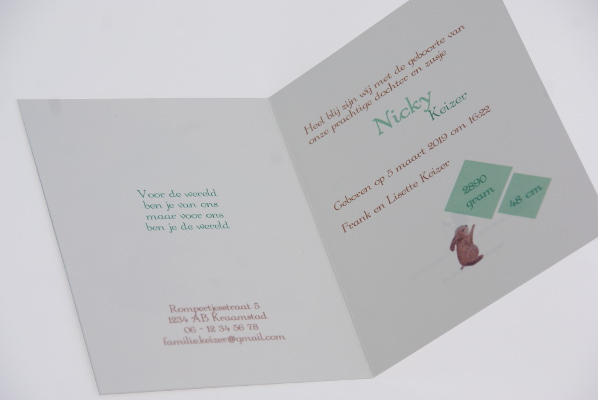 Voor de wereld
ben je van ons
maar voor ons
ben je de wereld
Rompertjesstraat 5
1234 AB Kraamstad
06 - 12 34 56 78
familie.keizer@gmail.com
Heel blij zijn wij met de geboorte van
onze prachtige dochter en zusje
Nicky
Keizer
Geboren op 5 maart 2019 om 16:22
Frank en Lisette Keizer
2890
gram
48 cm